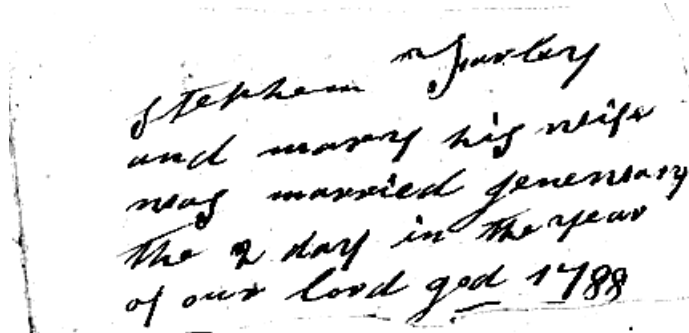 Stephen Farley
and mary his wife
was married jenenuary
the 2 day in the year
of our lord god 1788